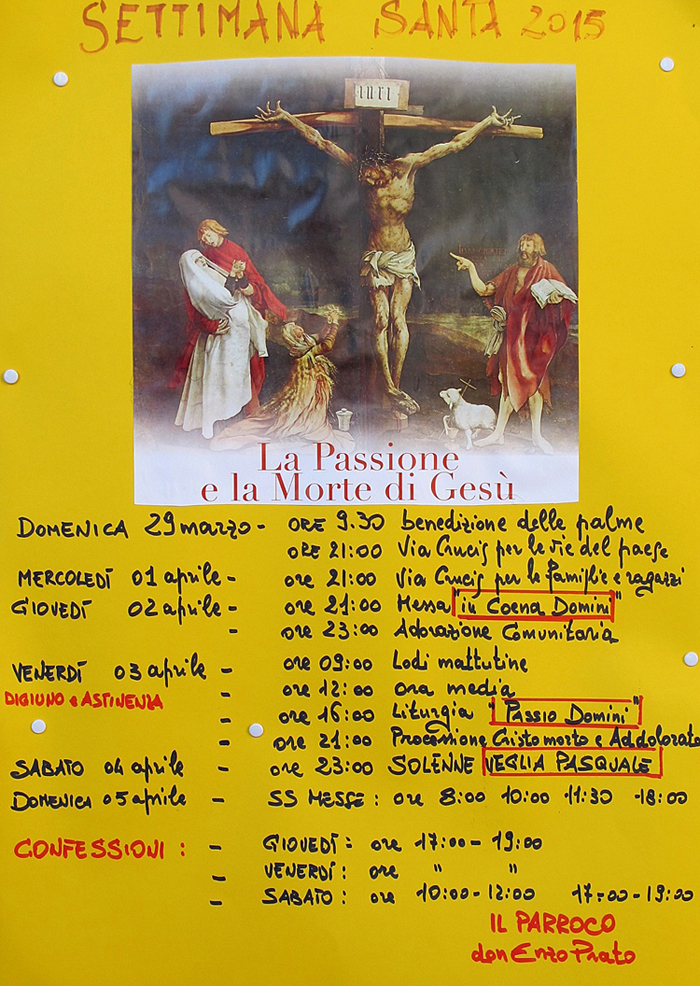 SETTIMANA SANTA 2015
INRI
La Passione
e la Morte di Gesù
DOMENICA 29 marzo - ORE 9.30 benedizione delle palme
ORE 21:00 Via Crucis per le vie del paese
MERCOLEDÌ 01 aprile - ore 21:00 Via Crucis per le famiglie e ragazzi
GIOVEDÌ 02 aprile - ore 21:00 Messa "in Coena Domini"
- ore 23:00 Adorazione Comunitaria
VENERDÌ 03 aprile - ore 09:00 Lodi mattutine
DIGIUNO e ASTINENZA - ore 12:00 ora media
- ore 16:00 Liturgia "Passio Domini"
- ore 21:00 Processione Cristo morto e Addolorata
SABATO 04 aprile - ore 23:00 SOLENNE VEGLIA PASQUALE
DOMENICA 05 aprile - SS MESSE : ore 8:00 10:00 11:30 -18:00
CONFESSIONI : - GIOVEDÌ : ore 17:00 - 19:00
- VENERDÌ : ore " "
- SABATO : ore 10:00-12:00 17:00-19:00
IL PARROCO
don Enzo Prato